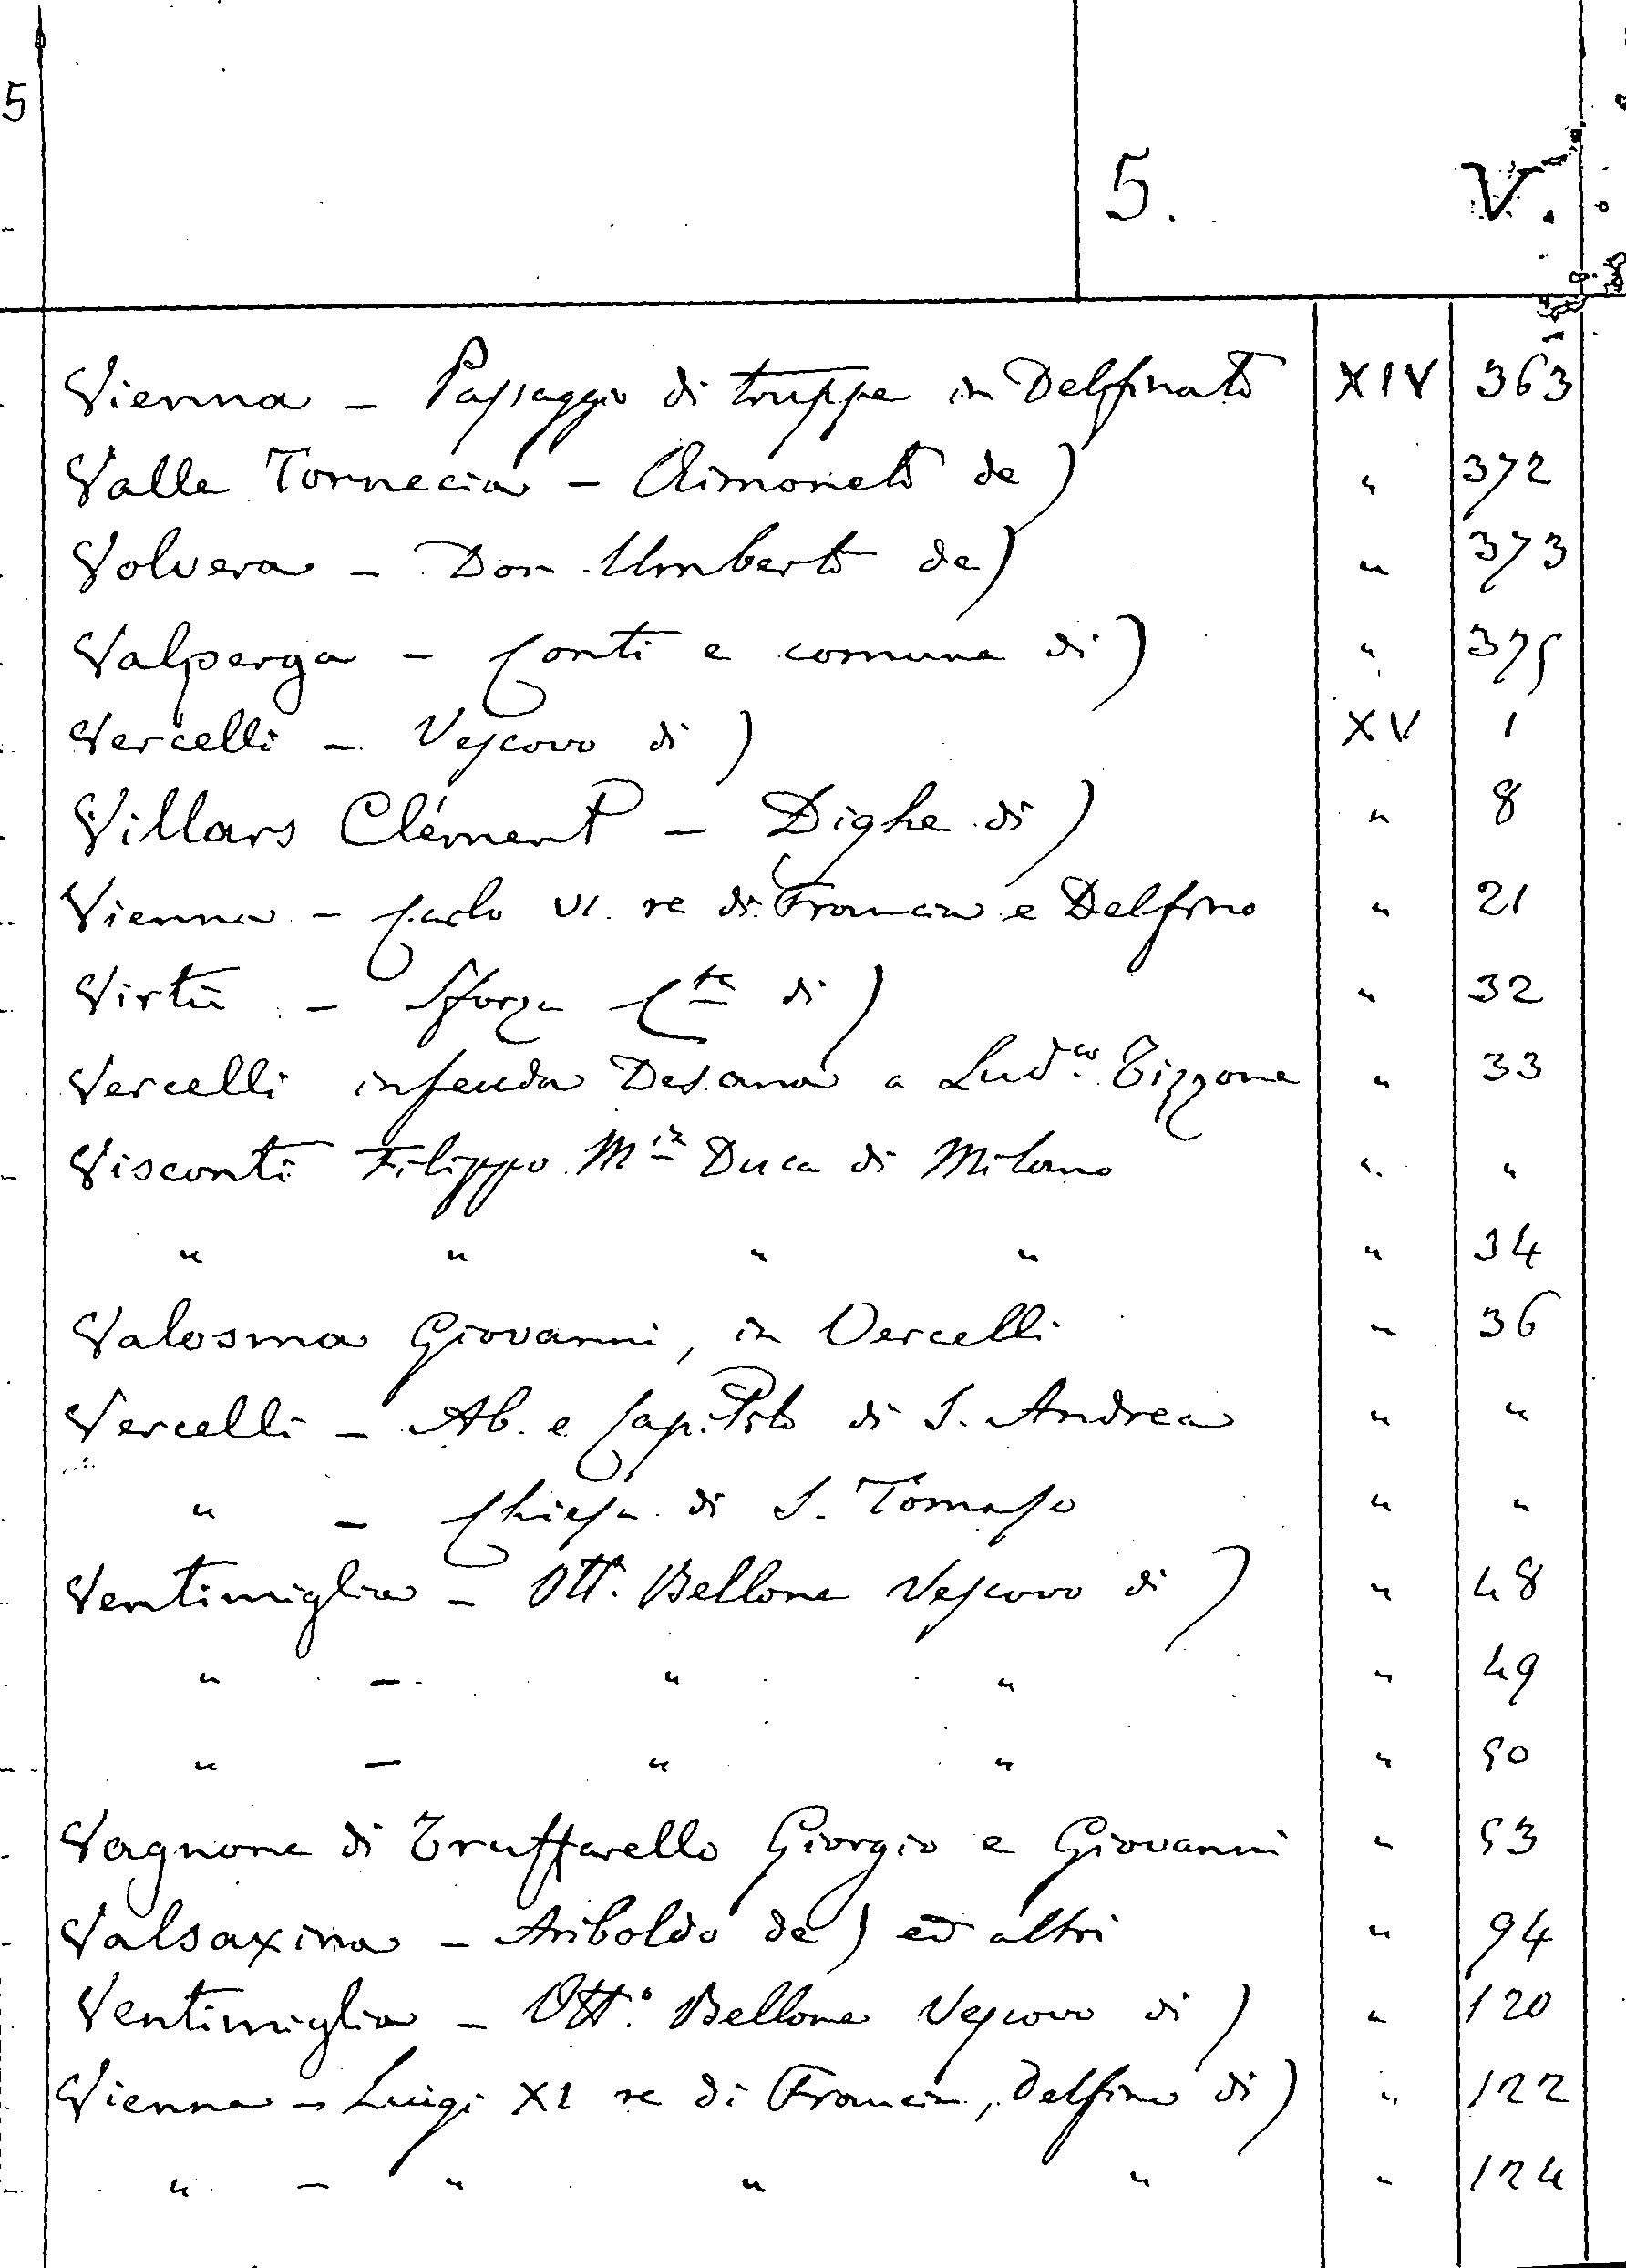 5
5. V.
Vienna – Passaggio di truppe in Delfinato XIV 363
Valle Tornecia – Aimoneto de) " 372
Volvera – Don Umberto de) " 373
Valperga – Conti e comune di) " 375
Vercelli – Vescovo di) XV 1
Villars Clément – Dighe di) " 8
Vienna – Carlo VI. re di Francia e Delfino " 21
Virtù – Sforza Cte di) " 32
Vercelli infeuda Desana a Ludco Tizzone " 33
Visconti Filippo Mia Duca di Milano " "
" " " " " 34
Valosma Giovanni, in Vercelli " 36
Vercelli – Ab. e Capitolo di S. Andrea " "
" – Chiesa di S. Tomaso " "
Ventimiglia – Otto. Bellone Vescovo di) " 48
" – " " " 49
" – " " " 50
Vagnone di Truffarello Giorgio e Giovanni " 53
Valsaxina – Ariboldo de) ed altri " 94
Ventimiglia – Otto. Bellone Vescovo di) " 120
Vienna – Luigi XI re di Francia, Delfino di) " 122
" – " " " " 124